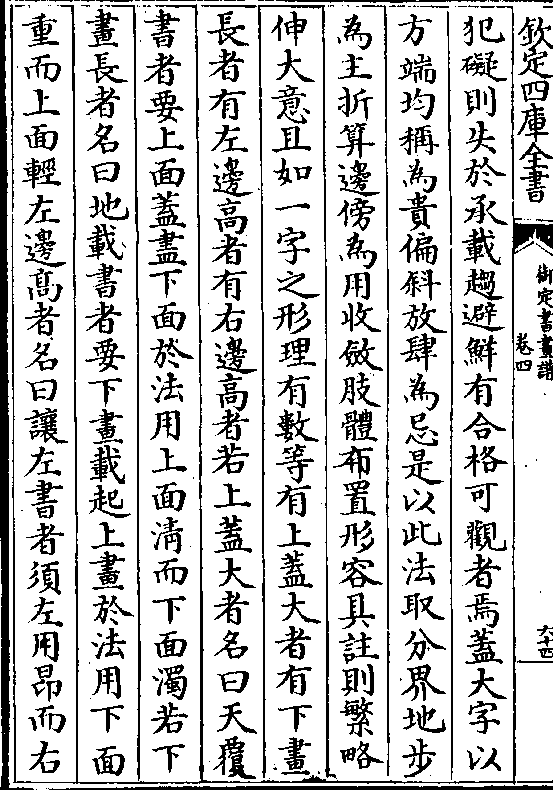 欽定四庫全書
御定書畫譜
卷四
六十四
犯礙則失於承載趨避鮮有合格可觀者焉蓋大字以
方端均稱為貴偏斜放肆為忌是以此法取分界地步
為主折算邊傍為用收斂肢體布置形容具註則繁略
伸大意且如一字之形理有數等有上蓋大者有下畫
長者有左邊高者有右邊高者若上蓋大者名曰天覆
書者要上面蓋盡下面於法用上面清而下面濁若下
畫長者名曰地載書者要下畫載起上畫於法用下面
重而上面輕左邊高者名曰讓左書者須左用昂而右